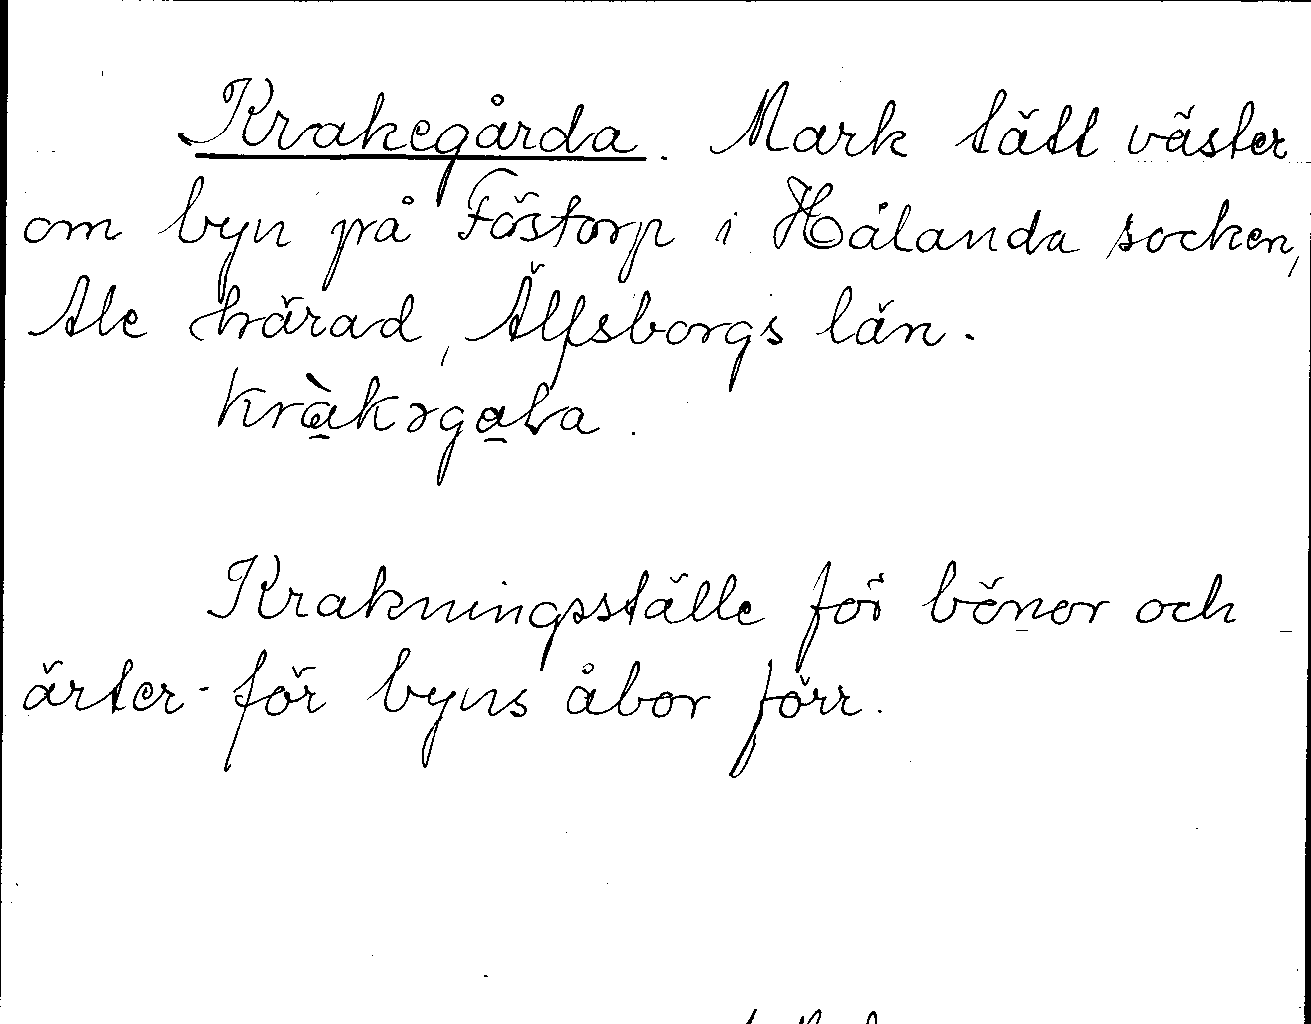 Krakegårda. Mark tätt väster
om byn på Föstorp i Hålanda socken,
Ale härad, Älfsborgs län.
Krakningsställe för bönor och
ärter för byns åbor förr.